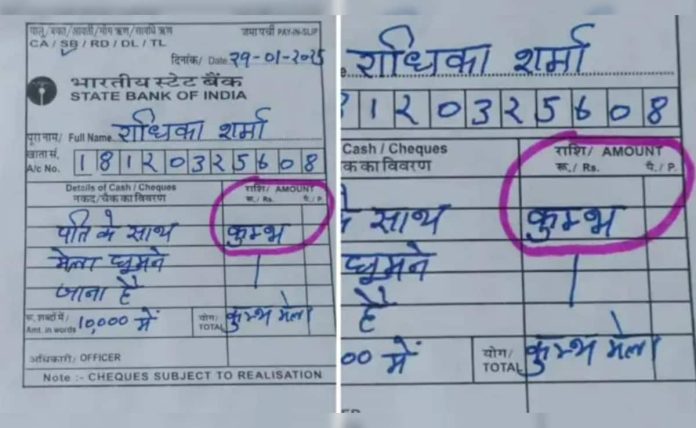 चालू/बचत/आवर्ती/मांग ऋण/सावधि ऋण
जमा पर्ची PAY-IN-SLIP
CA / SB / RD / DL / TL
दिनांक/ Date 29-01-2025
भारतीय स्टेट बैंक
STATE BANK OF INDIA
पूरा नाम/ Full Name राधिका शर्मा
खाता सं. A/c No. 18120325608
Details of Cash / Cheques
नकद/चैक का विवरण
राशि/ AMOUNT
रू./ Rs. पै./ P.
पति के साथ कुम्भ
मेला घूमने
जाना है
रू. शब्दों में/ Amt. in words 10,000 में
योग/ TOTAL कुम्भ मेला
अधिकारी/ OFFICER
Note :- CHEQUES SUBJECT TO REALISATION
e राधिका शर्मा
8120325608
Cash / Cheques
क का विवरण
राशि/ AMOUNT
रू./ Rs. पै./ P.
के साथ कुम्भ
घूमने
है
00 में
योग/ TOTAL कुम्भ मेला
ER